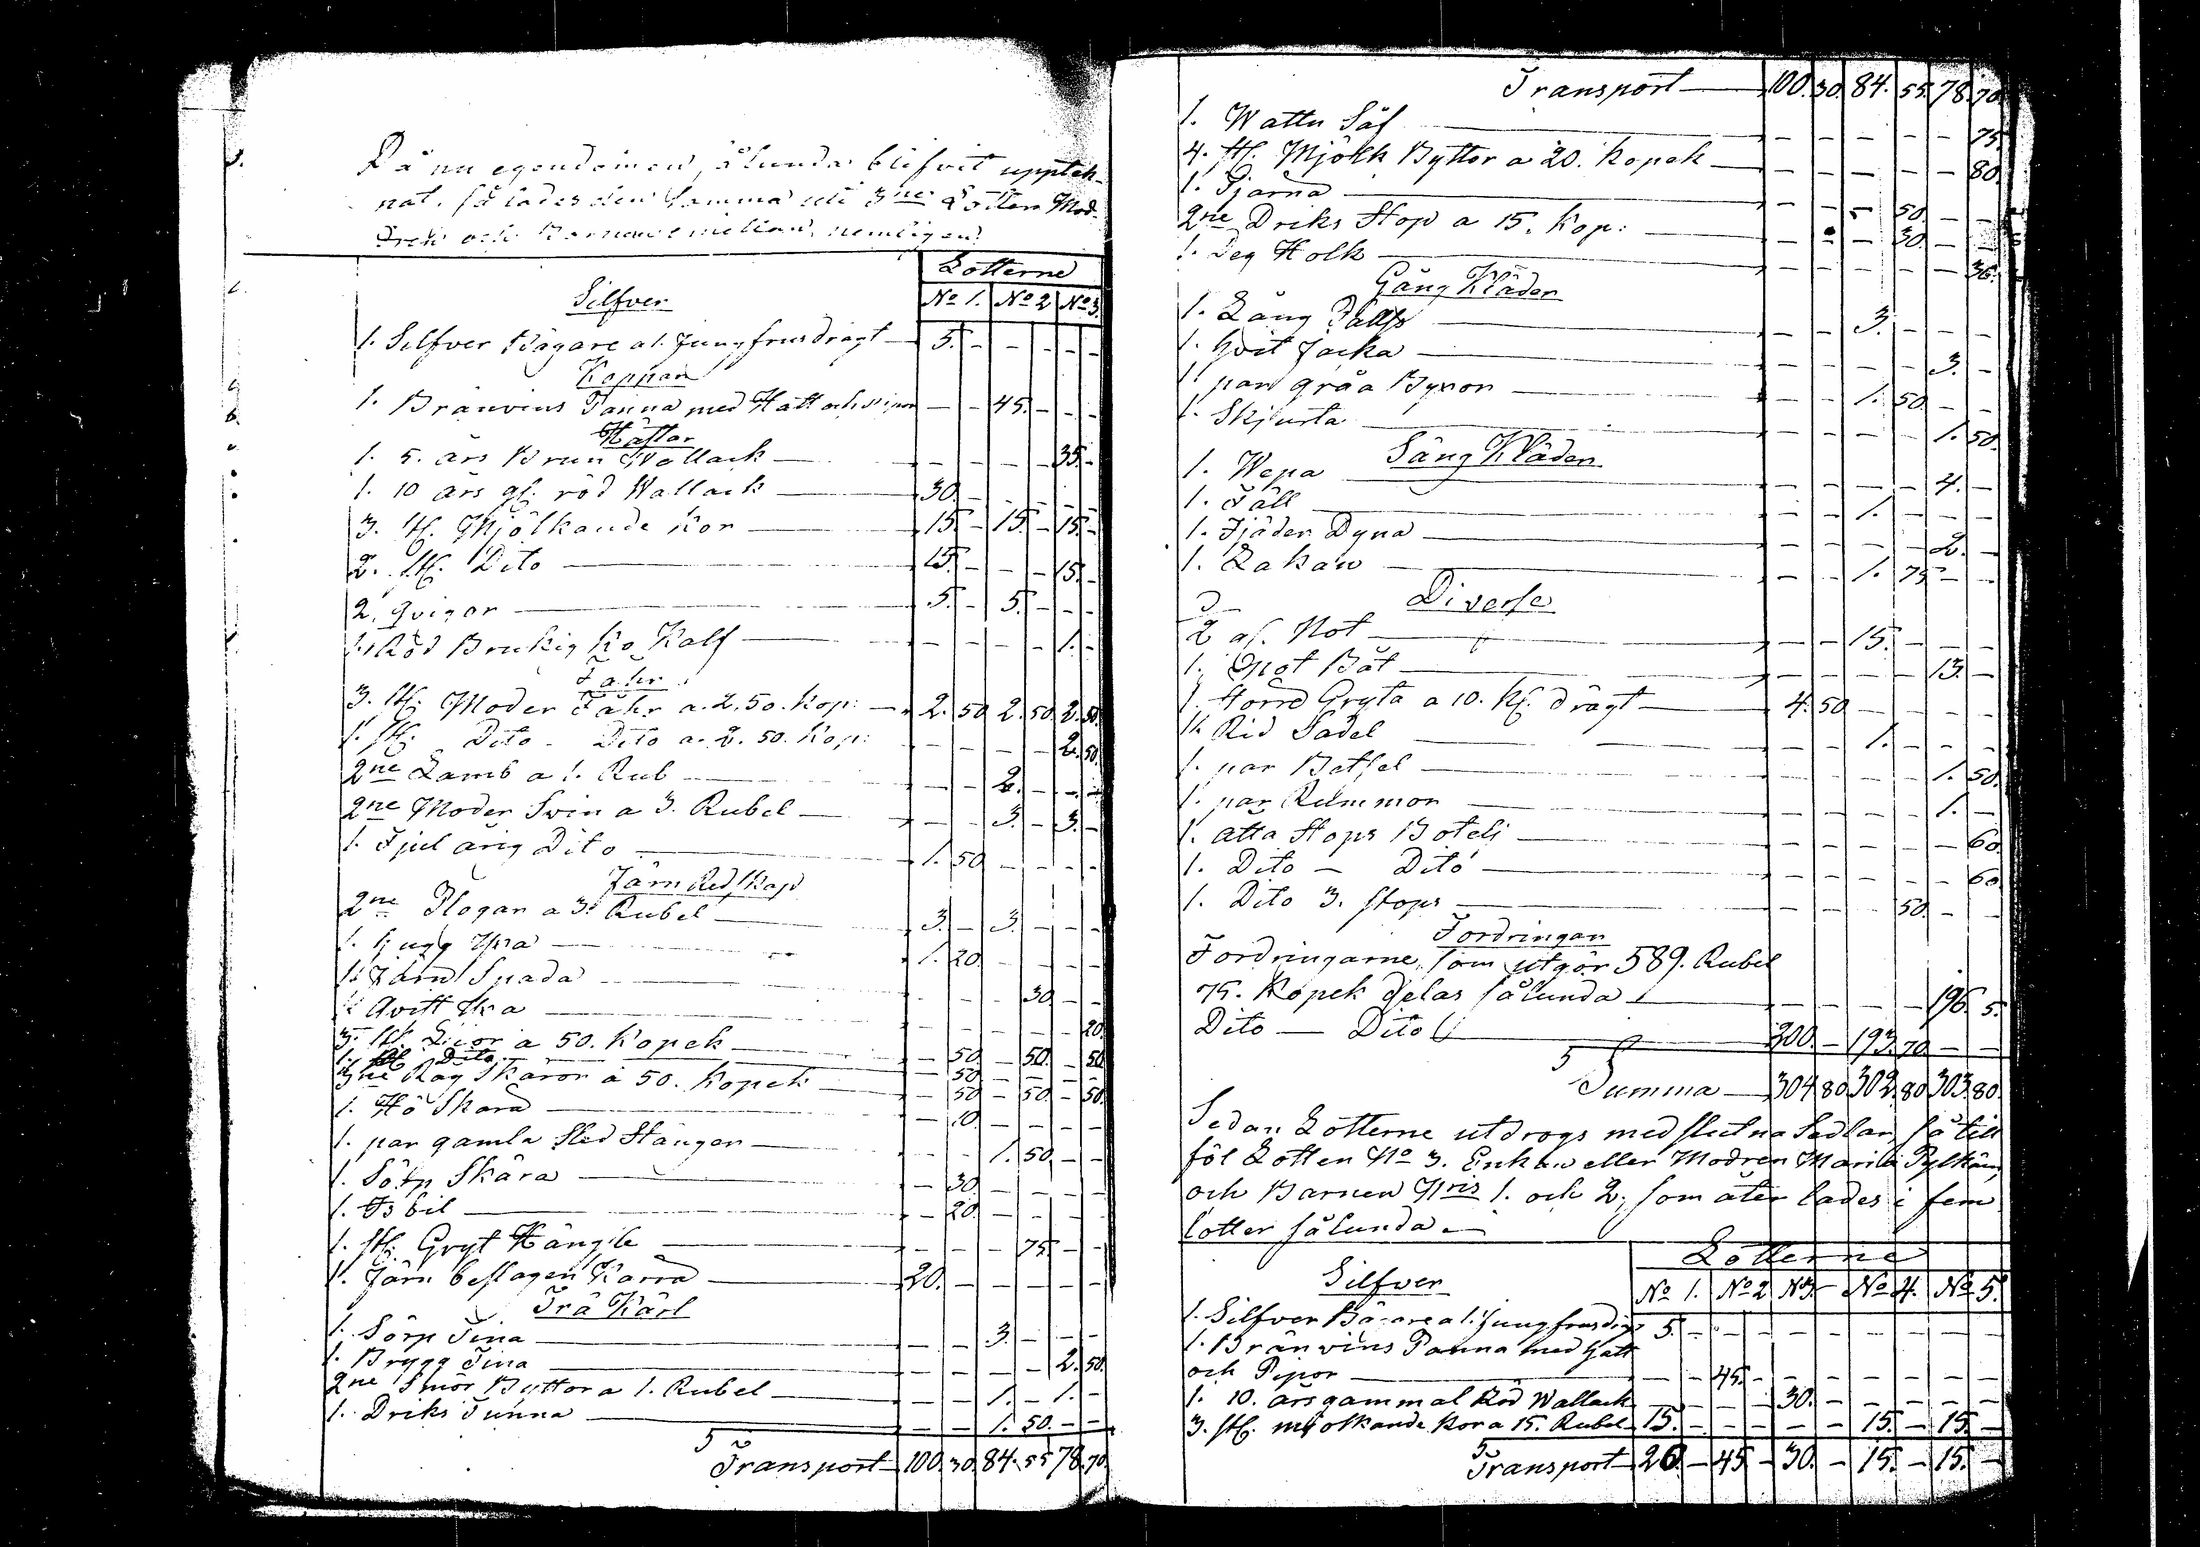 Då nu egendomen sålunda blifvit uppteknat, så lades den samma uti 3ne Lotter Mod-
ren och Barnen emellan, nemligen:
Lotterne
Silfver No 1. No 2 No 3.
1. Silfver Bägare a 1. Jungfrusdragt — 5. — — — — —
Koppar
1. Bränvins Panna med Hatt och pipor — — 45. — — —
Hästar
1. 5. års Brun Wallack — — — — — 35. —
1. 10 års gl. röd Wallack — 30. — — — — —
3. st. Mjölkande Kor — 15. — 15. — 15. —
2. st. Dito — 15. — — — 15. —
2. Qvigor — 5. — 5. — — —
1. Röd Brukig Ko Kalf — — — — — 1. —
Fåhr
3. st. Moder Fåhr a 2. 50. Kop: — 2. 50 2. 50 2. 50
1. st. Dito - Dito a. 2. 50. Kop: — — — — 2. 50
2ne Lamb a 1. Rub — — — 2. — — —
2ne Moder Svin a 3. Rubel — — — 3. — 3. —
1. Fjul årig Dito — 1. 50 — — — —
Järn Redskap
2ne Plogar a 3. Rubel — 3. — 3. — — —
1. Hugg Yxa — 1. 20. — — — —
1. Järn Spada — — — 30 — —
1. Qvist Yxa — — — — — 20.
3. st. Liior a 50. Kopek — — 50. — 50. — 50
1. st. Dito — 50 — — — —
3ne Råg Skäror á 50. Kopek — — 50 — 50 — 50.
1. Hö Skara — — 10. — — — —
1. par gamla Sled Stänger — — — 1. 50. — —
1. Sörp Skära — — 30. — — — —
1. Is bil — — 20. — — — —
1. st. Gryt Hängsle — — — — 75. — —
1. Järn beslagen Kärra — 20. — — — — —
Trä Kärl
1. Sörp Tina — — — 3. — — —
1. Brygg Tina — — — — — 2. 50.
2ne Smör Byttor a 1. Rubel — — — 1. — 1. —
1. Driks Tunna — — — 1. 50. — —
Transport — 100. 30. 84. 55 78. 70.
Transport — 100. 30. 84. 55. 78. 70.
1. Wattu Såf — — — — — — 75
4. st. Mjölk Byttor a 20. Kopek — — — — — — 80.
1. Tjärna — — — — 50. — —
2ne Driks Stop a 15. Kop: — — — — 30. — —
1. Deg Holk — — — — — — 35.
Gång Kläder
1. Lång Pälss — — — 3. — — —
1. Hvit Jacka — — — — — 3. —
1. par gråa Byxor — — — 1. 50. — —
1. Skjurta — — — — — 1. 50.
Säng Kläder
1. Wepa — — — — — 4. —
1. Fäll — — — 1. — — —
1. Fjäder Dyna — — — — — 2. —
1. Lakan — — — 1. 75 — —
Diverse
2 af. Not — — — 15. — — —
1. Not Båt — — — — — 13. —
1. Störrd Gryta a 10. K. drägt — 4. 50 — — — —
1. Rid Sadel — — — 1. — — —
1. par Betsel — — — — — 1. 50.
1. par Remmor — — — — — 1. —
1. Åtta Stops Botelj — — — — — — 60.
1. Dito — Dito — — — — — — 60.
1. Dito 3. stops — — — — 50. — —
Fordringar
Fordringarne, som utgör 589. Rubel
75. Kopek delas sålunda — — — — — 196. 5.
Dito — Dito — 200. — 193. 70 — —
Summa — 304 80. 302. 80 303. 80.
Sedan Lotterne utdrogs med slutna Sedlar, så till
föl Lotten No 3. Enkan eller Modren Maria Pylkäin,
och Barnen Nris 1. och 2, som åter lades i fem
lotter sålunda —
Lotterne
Silfver No 1. No 2 N3. No 4. No 5.
1. Silfver Bägare a 1. Jungfrusdragt 5. — — — — — — — — —
1. Bränvins Panna med Hatt
och Pipor — — — 45. — — — — — — —
1. 10. års gammal Röd Wallack — — — — 30. — — — — —
3. st. mjölkande Kor a 15. Rubel 15. — — — — — 15. — 15. —
Transport — 20. — 45 — 30. — 15. — 15. —